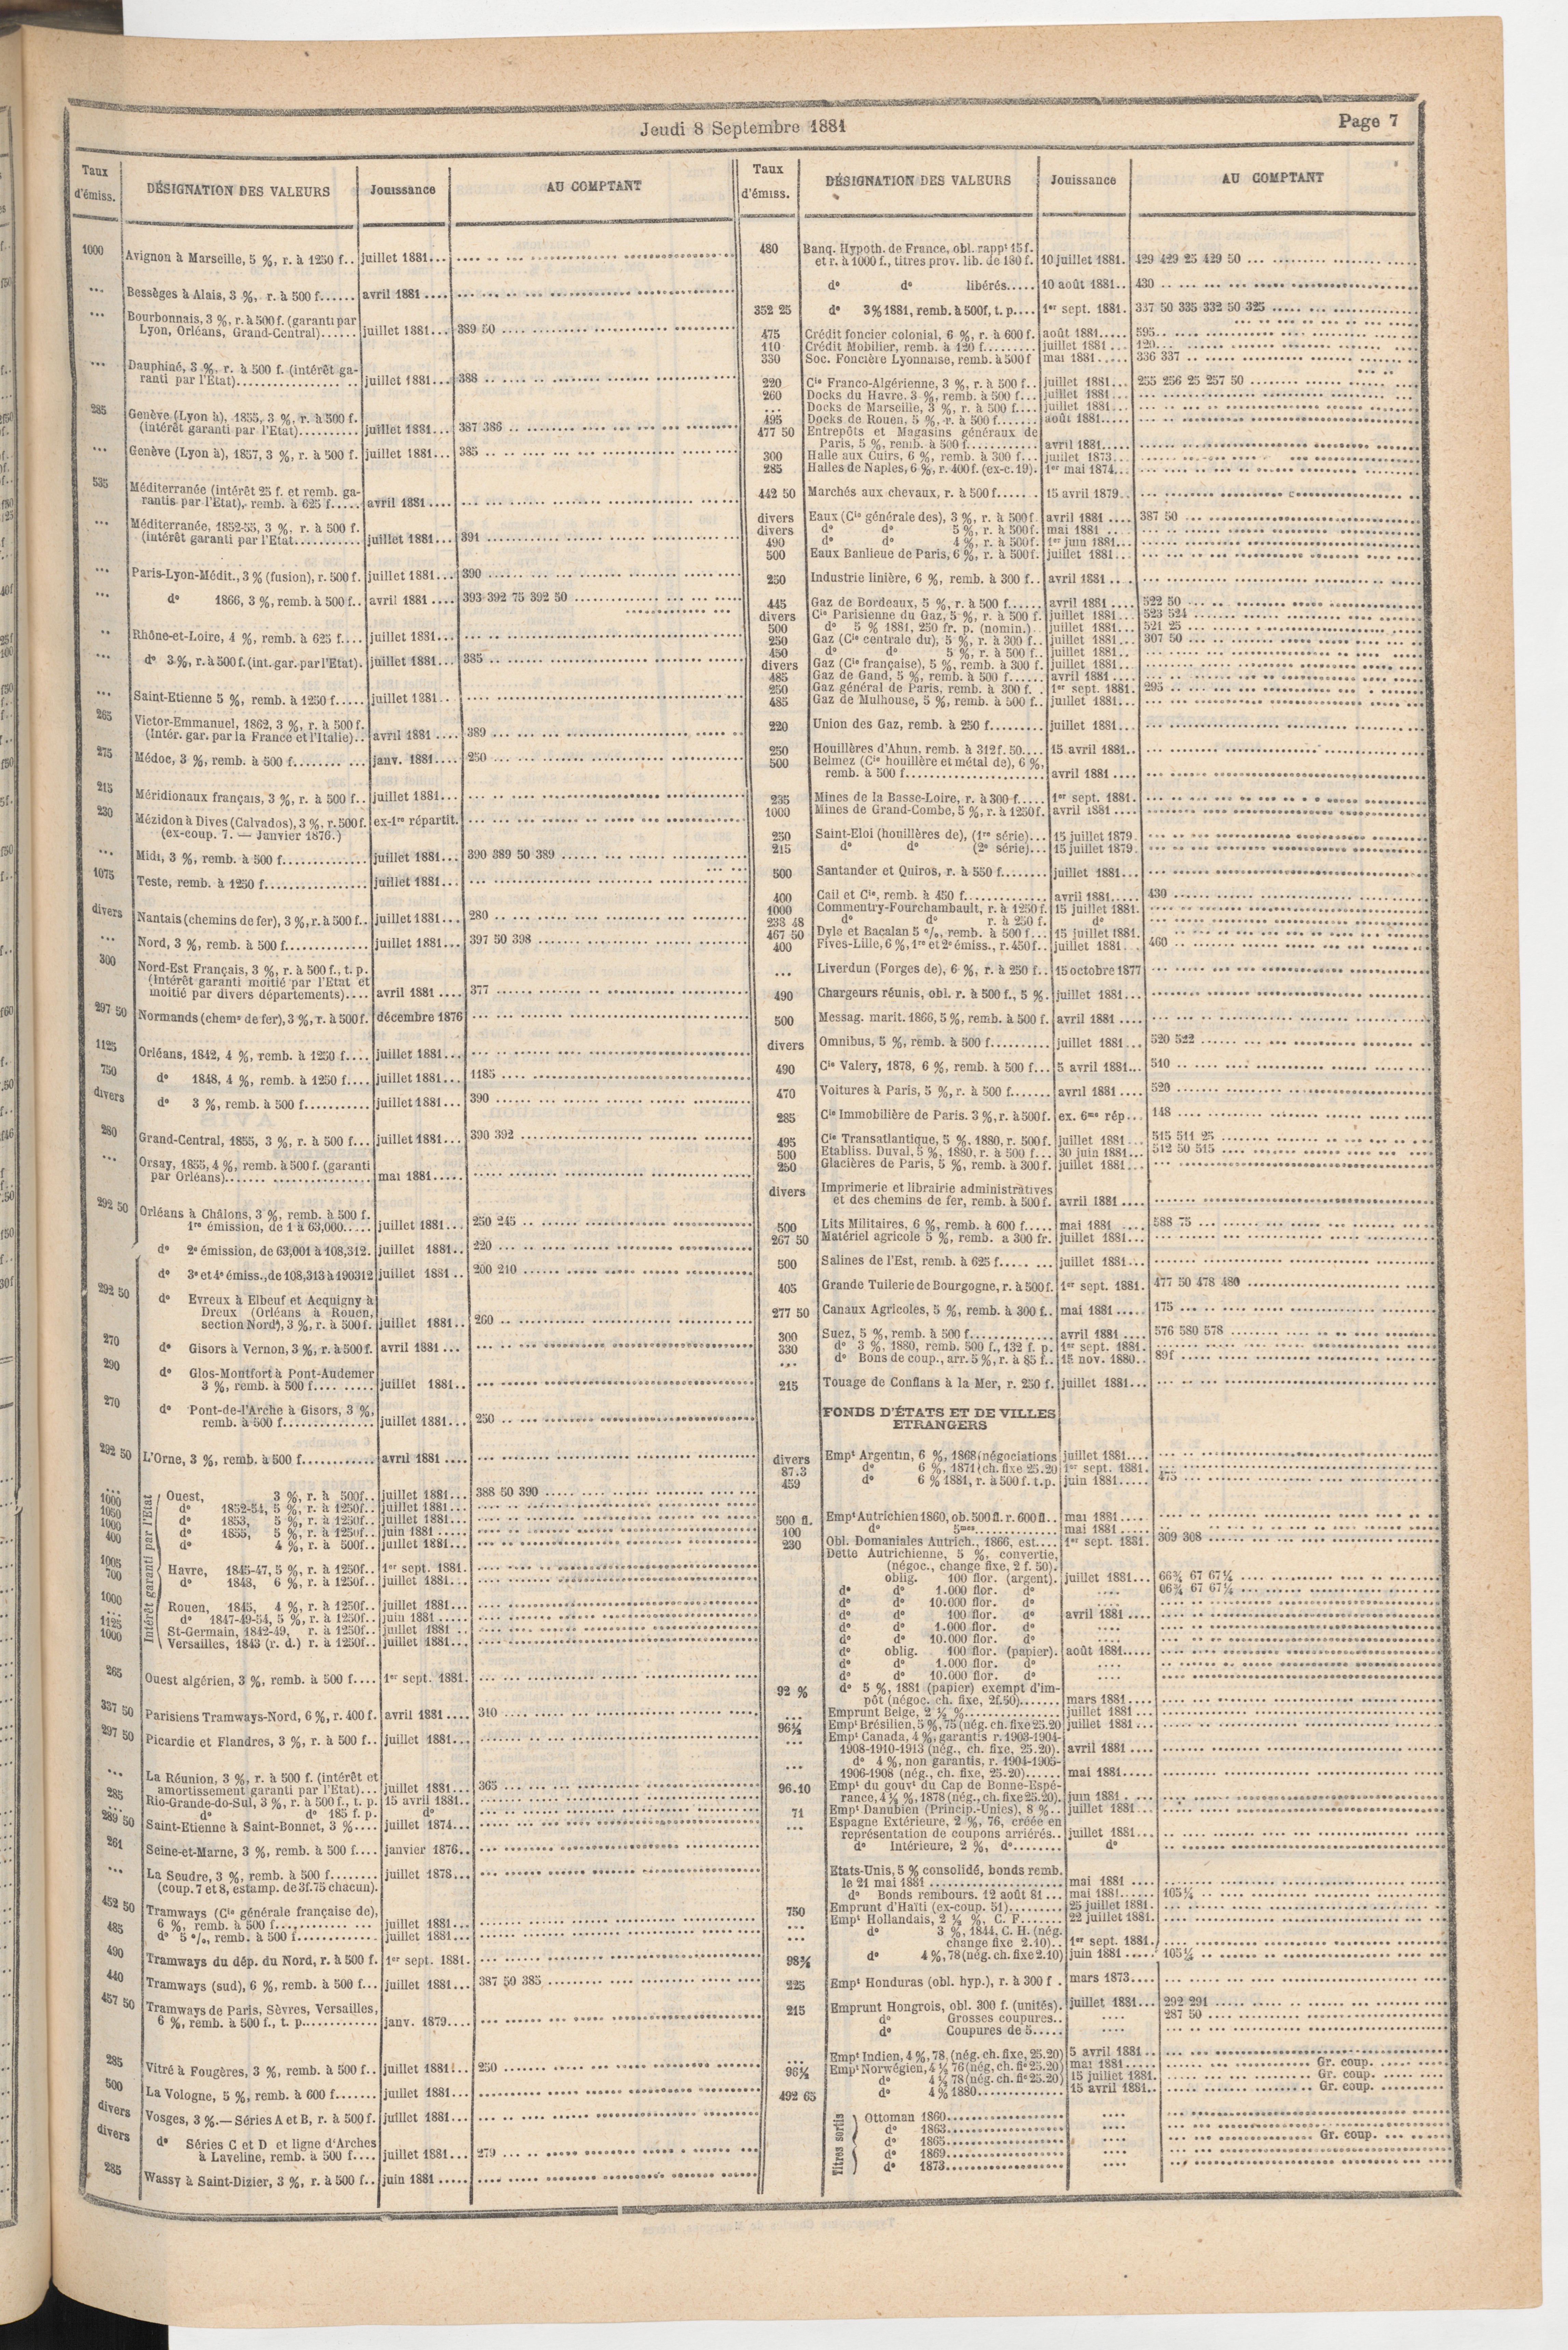 Jeudi 8 Septembre 1881
Page 7
Taux d'émiss.
DÉSIGNATION DES VALEURS
Jouissance
AU COMPTANT
1000 Avignon à Marseille, 5 %, r. à 1250 f.. juillet 1881...
... Bessèges à Alais, 3 %, r. à 500 f...... avril 1881 ....
... Bourbonnais, 3 %, r. à 500 f. (garanti par
Lyon, Orléans, Grand-Central)...... juillet 1881... 389 50
... Dauphiné, 3 %, r. à 500 f. (intérêt ga-
ranti par l'Etat).................. juillet 1881... 388
285 Genève (Lyon à), 1855, 3 %, r. à 500 f.
(intérêt garanti par l'Etat).......... juillet 1881... 387 386
... Genève (Lyon à), 1857, 3 %, r. à 500 f. juillet 1881... 385
535 Méditerranée (intérêt 25 f. et remb. ga-
rantis par l'Etat), remb. à 625 f..... avril 1881....
... Méditerranée, 1852-55, 3 %, r. à 500 f.
(intérêt garanti par l'Etat........... juillet 1881... 391
... Paris-Lyon-Médit., 3 % (fusion), r. 500 f. juillet 1881... 390
... do 1866, 3 %, remb. à 500 f.. avril 1881 .... 393 392 75 392 50
.. Rhône-et-Loire, 4 %, remb. à 625 f.... juillet 1881...
... do 3 %, r. à 500 f. (int. gar. par l'Etat). juillet 1881... 385
... Saint-Etienne 5 %, remb. à 1250 f..... juillet 1881..
265 Victor-Emmanuel, 1862, 3 %, r. à 500 f.
(Intér. gar. par la France et l'Italie).. avril 1881 .... 389
275 Médoc, 3 %, remb. à 500 f........ ... janv. 1881.... 250
215 Méridionaux français, 3 %, r. à 500 f.. juillet 1881...
230 Mézidon à Dives (Calvados), 3 %, r. 500 f. ex-1re répartit.
(ex-coup. 7. — Janvier 1876.)
... Midi, 3 %, remb. à 500 f............. juillet 1881... 390 389 50 389
1075 Teste, remb. à 1250 f................ juillet 1881...
divers Nantais (chemins de fer), 3 %, r. à 500 f.. juillet 1881... 280
... Nord, 3 %, remb. à 500 f............. juillet 1881... 397 50 398
300 Nord-Est Français, 3 %, r. à 500 f., t. p.
(Intérêt garanti moitié par l'Etat et
moitié par divers départements).... avril 1881 .... 377
297 50 Normands (chems de fer), 3 %, r. à 500 f. décembre 1876
1125 Orléans, 1842, 4 %, remb. à 1250 f.... juillet 1881...
750 do 1848, 4 %, remb. à 1250 f.... juillet 1881... 1185
divers do 3 %, remb. à 500 f........... juillet 1881... 390
280 Grand-Central, 1855, 3 %, r. à 500 f... juillet 1881... 390 392
... Orsay, 1855, 4 %, remb. à 500 f. (garanti
par Orléans)....................... mai 1881.....
292 50 Orléans à Châlons, 3 %, remb. à 500 f.
1re émission, de 1 à 63,000..... juillet 1881... 250 245
do 2e émission, de 63,001 à 108,312. juillet 1881.. 220
do 3e et 4e émiss., de 108,313 à 190312 juillet 1881 .. 200 210
292 50 do Evreux à Elbeuf et Acquigny à
Dreux (Orléans à Rouen,
section Nord), 3 %, r. à 500 f. juillet 1881.. 260
270 do Gisors à Vernon, 3 %, r. à 500 f. avril 1881 ...
290 do Glos-Montfort à Pont-Audemer
3 %, remb. à 500 f.... ..... juillet 1881..
270 do Pont-de-l'Arche à Gisors, 3 %,
remb. à 500 f.............. juillet 1881... 250
292 50 L'Orne, 3 %, remb. à 500 f........... avril 1881 ....
Intérêt garanti par l'Etat
... Ouest, 3 %, r. à 500f.. juillet 1881... 388 50 390
1000 do 1852-54, 5 %, r. à 1250f.. juillet 1881...
1050 do 1853, 5 %, r. à 1250f.. juillet 1881...
1000 do 1855, 5 %, r. à 1250f.. juin 1881 .....
400 do 4 %, r. à 500f.. juillet 1881...
1005 Havre, 1845-47, 5 %, r. à 1250f.. 1er sept. 1881.
700 do 1848, 6 %, r. à 1250f.. juillet 1881...
1000 Rouen, 1845, 4 %, r. à 1250f.. juillet 1881...
... do 1847-49-54, 5 %, r. à 1250f.. juin 1881 .....
1125 St-Germain, 1842-49, r. à 1250f.. juillet 1881 ..
1000 Versailles, 1843 (r. d.) r. à 1250f.. juillet 1881...
265 Ouest algérien, 3 %, remb. à 500 f.... 1er sept. 1881.
337 50 Parisiens Tramways-Nord, 6 %, r. 400 f. avril 1881 .... 310
297 50 Picardie et Flandres, 3 %, r. à 500 f.. juillet 1881...
... La Réunion, 3 %, r. à 500 f. (intérêt et
amortissement garanti par l'Etat)... juillet 1881... 365
285 Rio-Grande-do-Sul, 3 %, r. à 500 f., t. p. 15 avril 1881..
... do do 185 f. p. do
289 50 Saint-Etienne à Saint-Bonnet, 3 %.... juillet 1874...
261 Seine-et-Marne, 3 %, remb. à 500 f.... janvier 1876..
... La Seudre, 3 %, remb. à 500 f........ juillet 1878...
(coup. 7 et 8, estamp. de 3f.75 chacun).
452 50 Tramways (Cie générale française de),
6 %, remb. à 500 f.............. juillet 1881...
485 do 5 %, remb. à 500 f............. juillet 1881...
490 Tramways du dép. du Nord, r. à 500 f. 1er sept. 1881.
440 Tramways (sud), 6 %, remb. à 500 f... juillet 1881... 387 50 385
457 50 Tramways de Paris, Sèvres, Versailles,
6 %, remb. à 500 f., t. p............ janv. 1879....
285 Vitré à Fougères, 3 %, remb. à 500 f.. juillet 1881.. 250
500 La Vologne, 5 %, remb. à 600 f....... juillet 1881...
divers Vosges, 3 %.—Séries A et B, r. à 500 f. juillet 1881...
divers do Séries C et D et ligne d'Arches
à Laveline, remb. à 500 f.... juillet 1881... 279
285 Wassy à Saint-Dizier, 3 %, r. à 500 f.. juin 1881 .....
Taux d'émiss.
DÉSIGNATION DES VALEURS
Jouissance
AU COMPTANT
480 Banq. Hypoth. de France, obl. rappt 15 f.
et r. à 1000 f., titres prov. lib. de 180 f. 10 juillet 1881. 429 429 25 429 50
do do libérés..... 10 août 1881.. 430
352 25 do 3% 1881, remb. à 500f, t. p.... 1er sept. 1881. 337 50 335 332 50 325
475 Crédit foncier colonial, 6 %, r. à 600 f. août 1881..... 595
110 Crédit Mobilier, remb. à 120 f......... juillet 1881 ... 120
330 Soc. Foncière Lyonnaise, remb. à 500 f mai 1881..... 336 337
220 Cie Franco-Algérienne, 3 %, r. à 500 f.. juillet 1881... 255 256 25 257 50
260 Docks du Havre. 3 %, remb. à 500 f... juillet 1881...
... Docks de Marseille, 3 %, r. à 500 f.... juillet 1881...
495 Docks de Rouen, 5 %, r. à 500 f....... août 1881.....
477 50 Entrepôts et Magasins généraux de
Paris, 5 %, remb. à 500 f........... avril 1881....
300 Halle aux Cuirs, 6 %, remb. à 300 f... juillet 1873...
285 Halles de Naples, 6 %, r. 400 f. (ex-c. 19). 1er mai 1874...
442 50 Marchés aux chevaux, r. à 500 f....... 15 avril 1879..
divers Eaux (Cie générale des), 3 %, r. à 500 f. avril 1881 .... 387 50
divers do do 5 %, r. à 500f. mai 1881
490 do do 4 %, r. à 500f. 1er juin 1881...
500 Eaux Banlieue de Paris, 6 %, r. à 500f. juillet 1881...
250 Industrie linière, 6 %, remb. à 300 f.. avril 1881 ....
445 Gaz de Bordeaux, 5 %, r. à 500 f...... avril 1881 .... 522 50
divers Cie Parisienne du Gaz, 5 %, r. à 500 f. juillet 1881... 523 524
500 do 5 % 1881, 250 fr. p. (nomin.).. juillet 1881... 521 25
250 Gaz (Cie centrale du), 5 %, r. à 300 f.. juillet 1881... 307 50
450 do do 5 %, r. à 500 f.. juillet 1881..
divers Gaz (Cie française), 5 %, remb. à 300 f. juillet 1881...
485 Gaz de Gand, 5 %, remb. à 500 f...... avril 1881 ....
250 Gaz général de Paris, remb. à 300 f. . 1er sept. 1881. 295
485 Gaz de Mulhouse, 5 %, remb. à 500 f.. juillet 1881...
220 Union des Gaz, remb. à 250 f......... juillet 1881...
250 Houillères d'Ahun, remb. à 312f. 50.... 15 avril 1881..
500 Belmez (Cie houillère et métal de), 6 %,
remb. à 500 f...................... avril 1881 ....
235 Mines de la Basse-Loire, r. à 300 f..... 1er sept. 1881.
1000 Mines de Grand-Combe, 5 %, r. à 1250f. avril 1881 ....
250 Saint-Eloi (houillères de), (1re série)... 15 juillet 1879.
215 do do (2e série)... 15 juillet 1879.
500 Santander et Quiros, r. à 550 f........ juillet 1881...
400 Cail et Cie, remb. à 450 f............. avril 1881..... 430
1000 Commentry-Fourchambault, r. à 1250 f. 15 juillet 1881.
238 48 do do r. à 250 f. do
467 50 Dyle et Bacalan 5 %, remb. à 500 f... 15 juillet 1881.
400 Fives-Lille, 6 %, 1re et 2e émiss., r. 450 f.. juillet 1881... 460
... Liverdun (Forges de), 6 %, r. à 250 f.. 15 octobre 1877
490 Chargeurs réunis, obl. r. à 500 f., 5 %. juillet 1881...
500 Messag. marit. 1866, 5 %, remb. à 500 f. avril 1881 ....
divers Omnibus, 5 %, remb. à 500 f.......... juillet 1881... 520 522
490 Cie Valery, 1878, 6 %, remb. à 500 f... 5 avril 1881... 510
470 Voitures à Paris, 5 %, r. à 500 f....... avril 1881 .... 520
285 Cie Immobilière de Paris. 3 %, r. à 500 f. ex. 6me rép... 148
495 Cie Transatlantique, 5 %, 1880, r. 500 f. juillet 1881 ... 515 511 25
500 Etabliss. Duval, 5 %, 1880, r. à 500 f... 30 juin 1881... 512 50 515
250 Glacières de Paris, 5 %, remb. à 300 f. juillet 1881...
divers Imprimerie et librairie administratives
et des chemins de fer, remb. à 500 f. avril 1881 ....
500 Lits Militaires, 6 %, remb. à 600 f..... mai 1881 .... 588 75
267 50 Matériel agricole 5 %, remb. a 300 fr. juillet 1881...
500 Salines de l'Est, remb. à 625 f..... ... juillet 1881...
405 Grande Tuilerie de Bourgogne, r. à 500 f. 1er sept. 1881. 477 50 478 480
277 50 Canaux Agricoles, 5 %, remb. à 300 f.. mai 1881 ..... 175
300 Suez, 5 %, remb. à 500 f.............. avril 1881 .... 576 580 578
330 do 3 %, 1880, remb. 500 f., 132 f. p. 1er sept. 1881.
... do Bons de coup., arr. 5 %, r. à 85 f.. 15 nov. 1880.. 89f
215 Touage de Conflans à la Mer, r. 250 f. juillet 1881...
FONDS D'ÉTATS ET DE VILLES
ETRANGERS
divers Empt Argentin, 6 %, 1868 (négociations juillet 1881....
87.3 do 6 %, 1871 (ch. fixe 25.20 1er sept. 1881.
459 do 6 % 1881, r. à 500 f. t. p. juin 1881..... 475
500 fl. Empt Autrichien 1860, ob. 500 fl. r. 600 fl.. mai 1881.....
100 do 5mes.............. mai 1881.....
230 Obl. Domaniales Autrich., 1866, est.... 1er sept. 1881. 309 308
Dette Autrichienne, 5 %, convertie,
(négoc., change fixe, 2 f. 50).
oblig. 100 flor. (argent). juillet 1881... 66¾ 67 67¼
do do 1.000 flor. do .... 66¾ 67 67¼
do do 10.000 flor. do ....
do do 100 flor. do avril 1881 ....
do do 1.000 flor. do ....
do do 10.000 flor. do ....
do oblig. 100 flor. (papier). août 1881.....
do do 1.000 flor. do ....
do do 10.000 flor. do ....
92 % do 5 %, 1881 (papier) exempt d'im-
pôt (négoc. ch. fixe, 2f.50)....... mars 1881....
... Emprunt Belge, 2 ½ %.............. juillet 1881...
96½ Empt Brésilien, 5 %, 75 (nég. ch. fixe 25.20 juillet 1881...
... Empt Canada, 4 %, garantis r. 1903-1904-
1908-1910-1913 (nég., ch. fixe, 25.20). avril 1881 ....
... do 4 %, non garantis, r. 1904-1905-
1906-1908 (nég., ch. fixe, 25.20)...... mai 1881.....
96.10 Empt du gouvt du Cap de Bonne-Espé-
rance, 4 ½ %, 1878 (nég., ch. fixe 25.20). juin 1881
71 Empt Danubien (Princip.-Unies), 8 %.. juillet 1881...
... Espagne Extérieure, 2 %, 76, créée en
représentation de coupons arriérés.. juillet 1881...
do Intérieure, 2 %, do........ do
Etats-Unis, 5 % consolidé, bonds remb.
le 21 mai 1881 .................... mai 1881 ....
do Bonds rembours. 12 août 81 ... mai 1881...... 105¼
750 Emprunt d'Haïti (ex-coup. 51)......... 25 juillet 1881.
... Empt Hollandais, 2 ½ %, C. F....... 22 juillet 1881.
... do 3 %, 1844, C. H. (nég.
change fixe 2.10).. 1er sept. 1881.
98¾ do 4 %, 78 (nég. ch. fixe 2.10) juin 1881 ..... 105¼
225 Empt Honduras (obl. hyp.), r. à 300 f . mars 1873....
215 Emprunt Hongrois, obl. 300 f. (unités). juillet 1881... 292 291
do Grosses coupures.. .... 287 50
do Coupures de 5..... ....
... Empt Indien, 4 %, 78, (nég. ch. fixe, 25.20) 5 avril 1881 ..
96½ Empt Norwégien, 4 ½ 76 (nég, ch. fie 25.20) mai 1881..... Gr. coup.
do 4 ½ 78 (nég. ch. fie 25.20) 15 juillet 1881. Gr. coup.
492 65 do 4 % 1880............. 15 avril 1881.. Gr. coup.
Titres sortis
Ottoman 1860.................. ....
do 1863.................. ....
do 1865.................. .... Gr. coup.
do 1869.................. ....
do 1873.................. ....